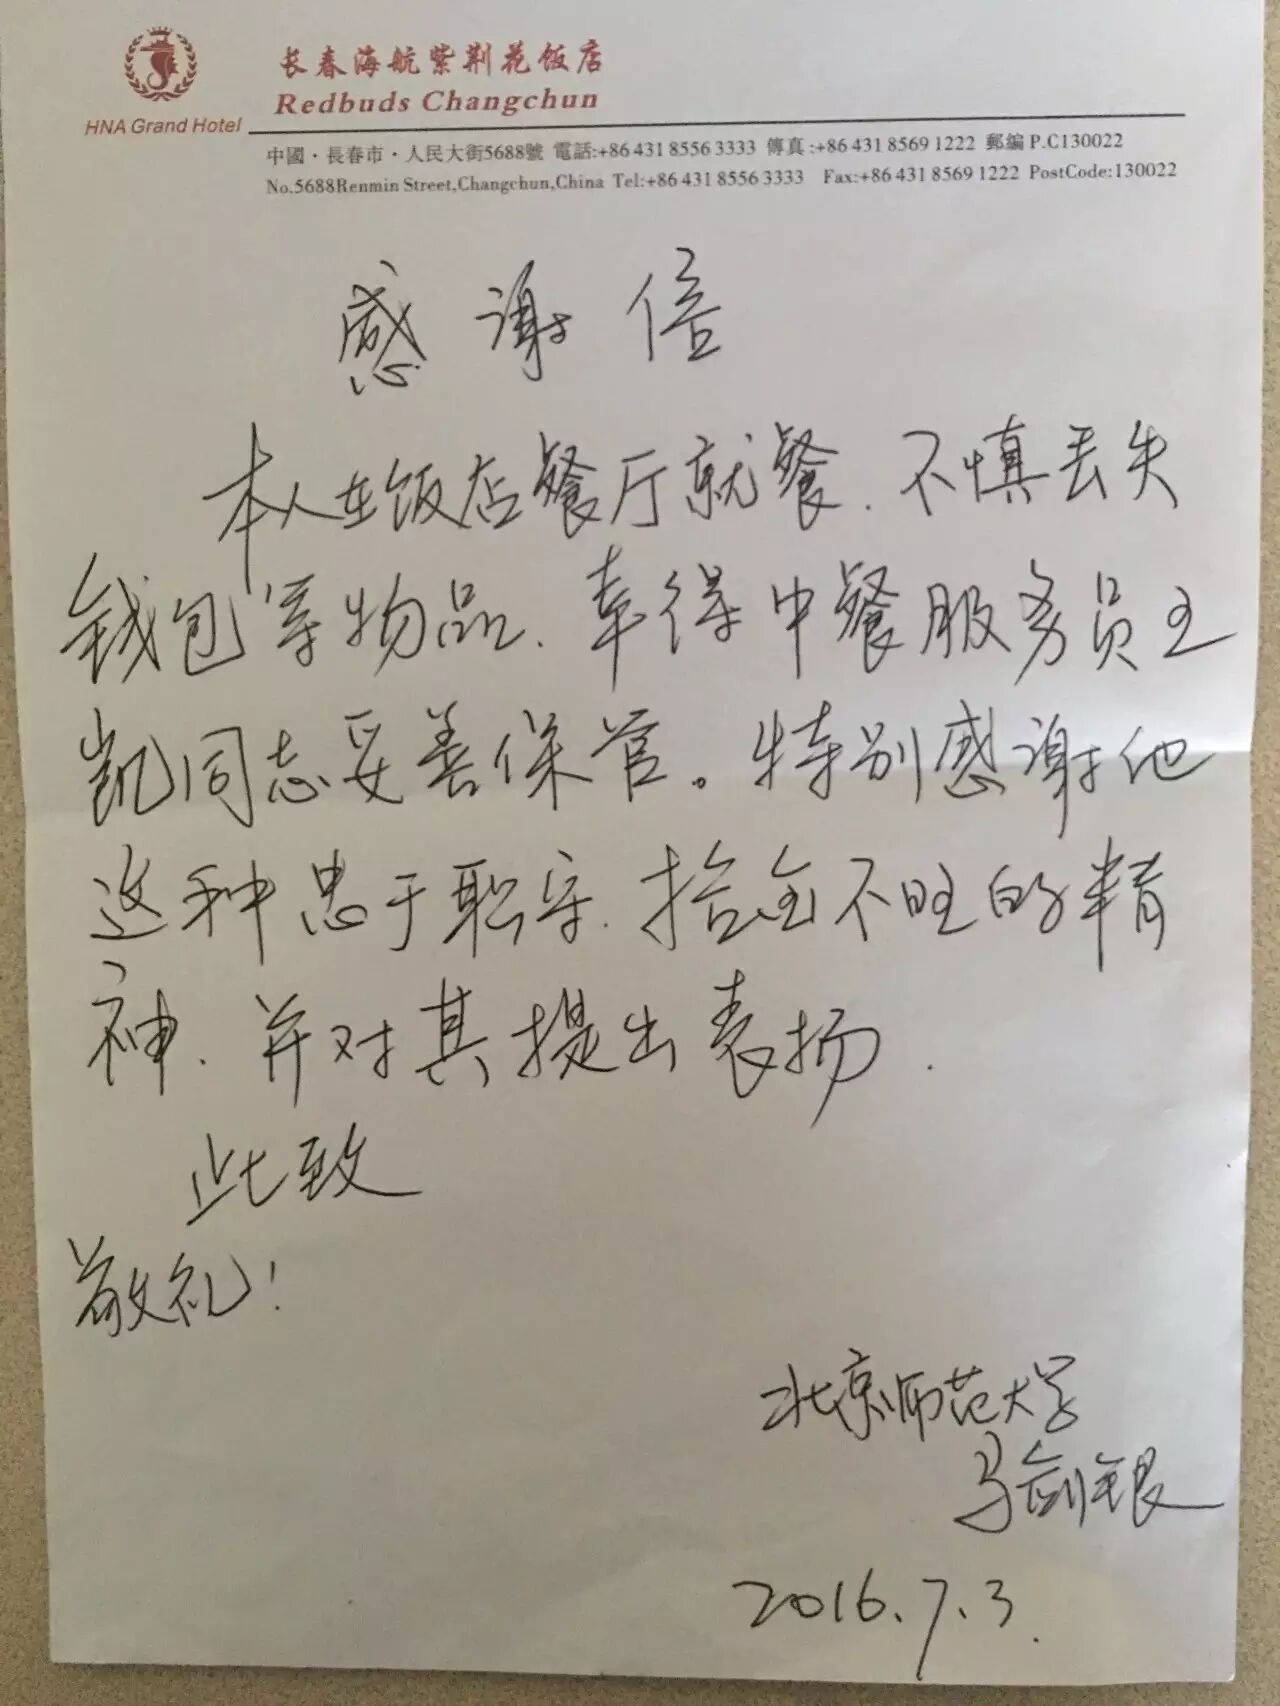 长春海航紫荆花饭店
Redbuds Changchun
HNA Grand Hotel
中國·長春市·人民大街5688號 電話:+86 431 8556 3333 傳真:+86 431 8569 1222 郵编 P.C130022
No.5688Renmin Street,Changchun,China Tel:+86 431 8556 3333 Fax:+86 431 8569 1222 PostCode:130022
感谢信
本人在饭店餐厅就餐.不慎丢失
钱包等物品、幸得中餐服务员王
凯同志妥善保管。特别感谢他
这种忠于职守.拾金不昧的精
神.并对其提出表扬.
此致
敬礼!
北京师范大学
马剑银
2016.7.3.